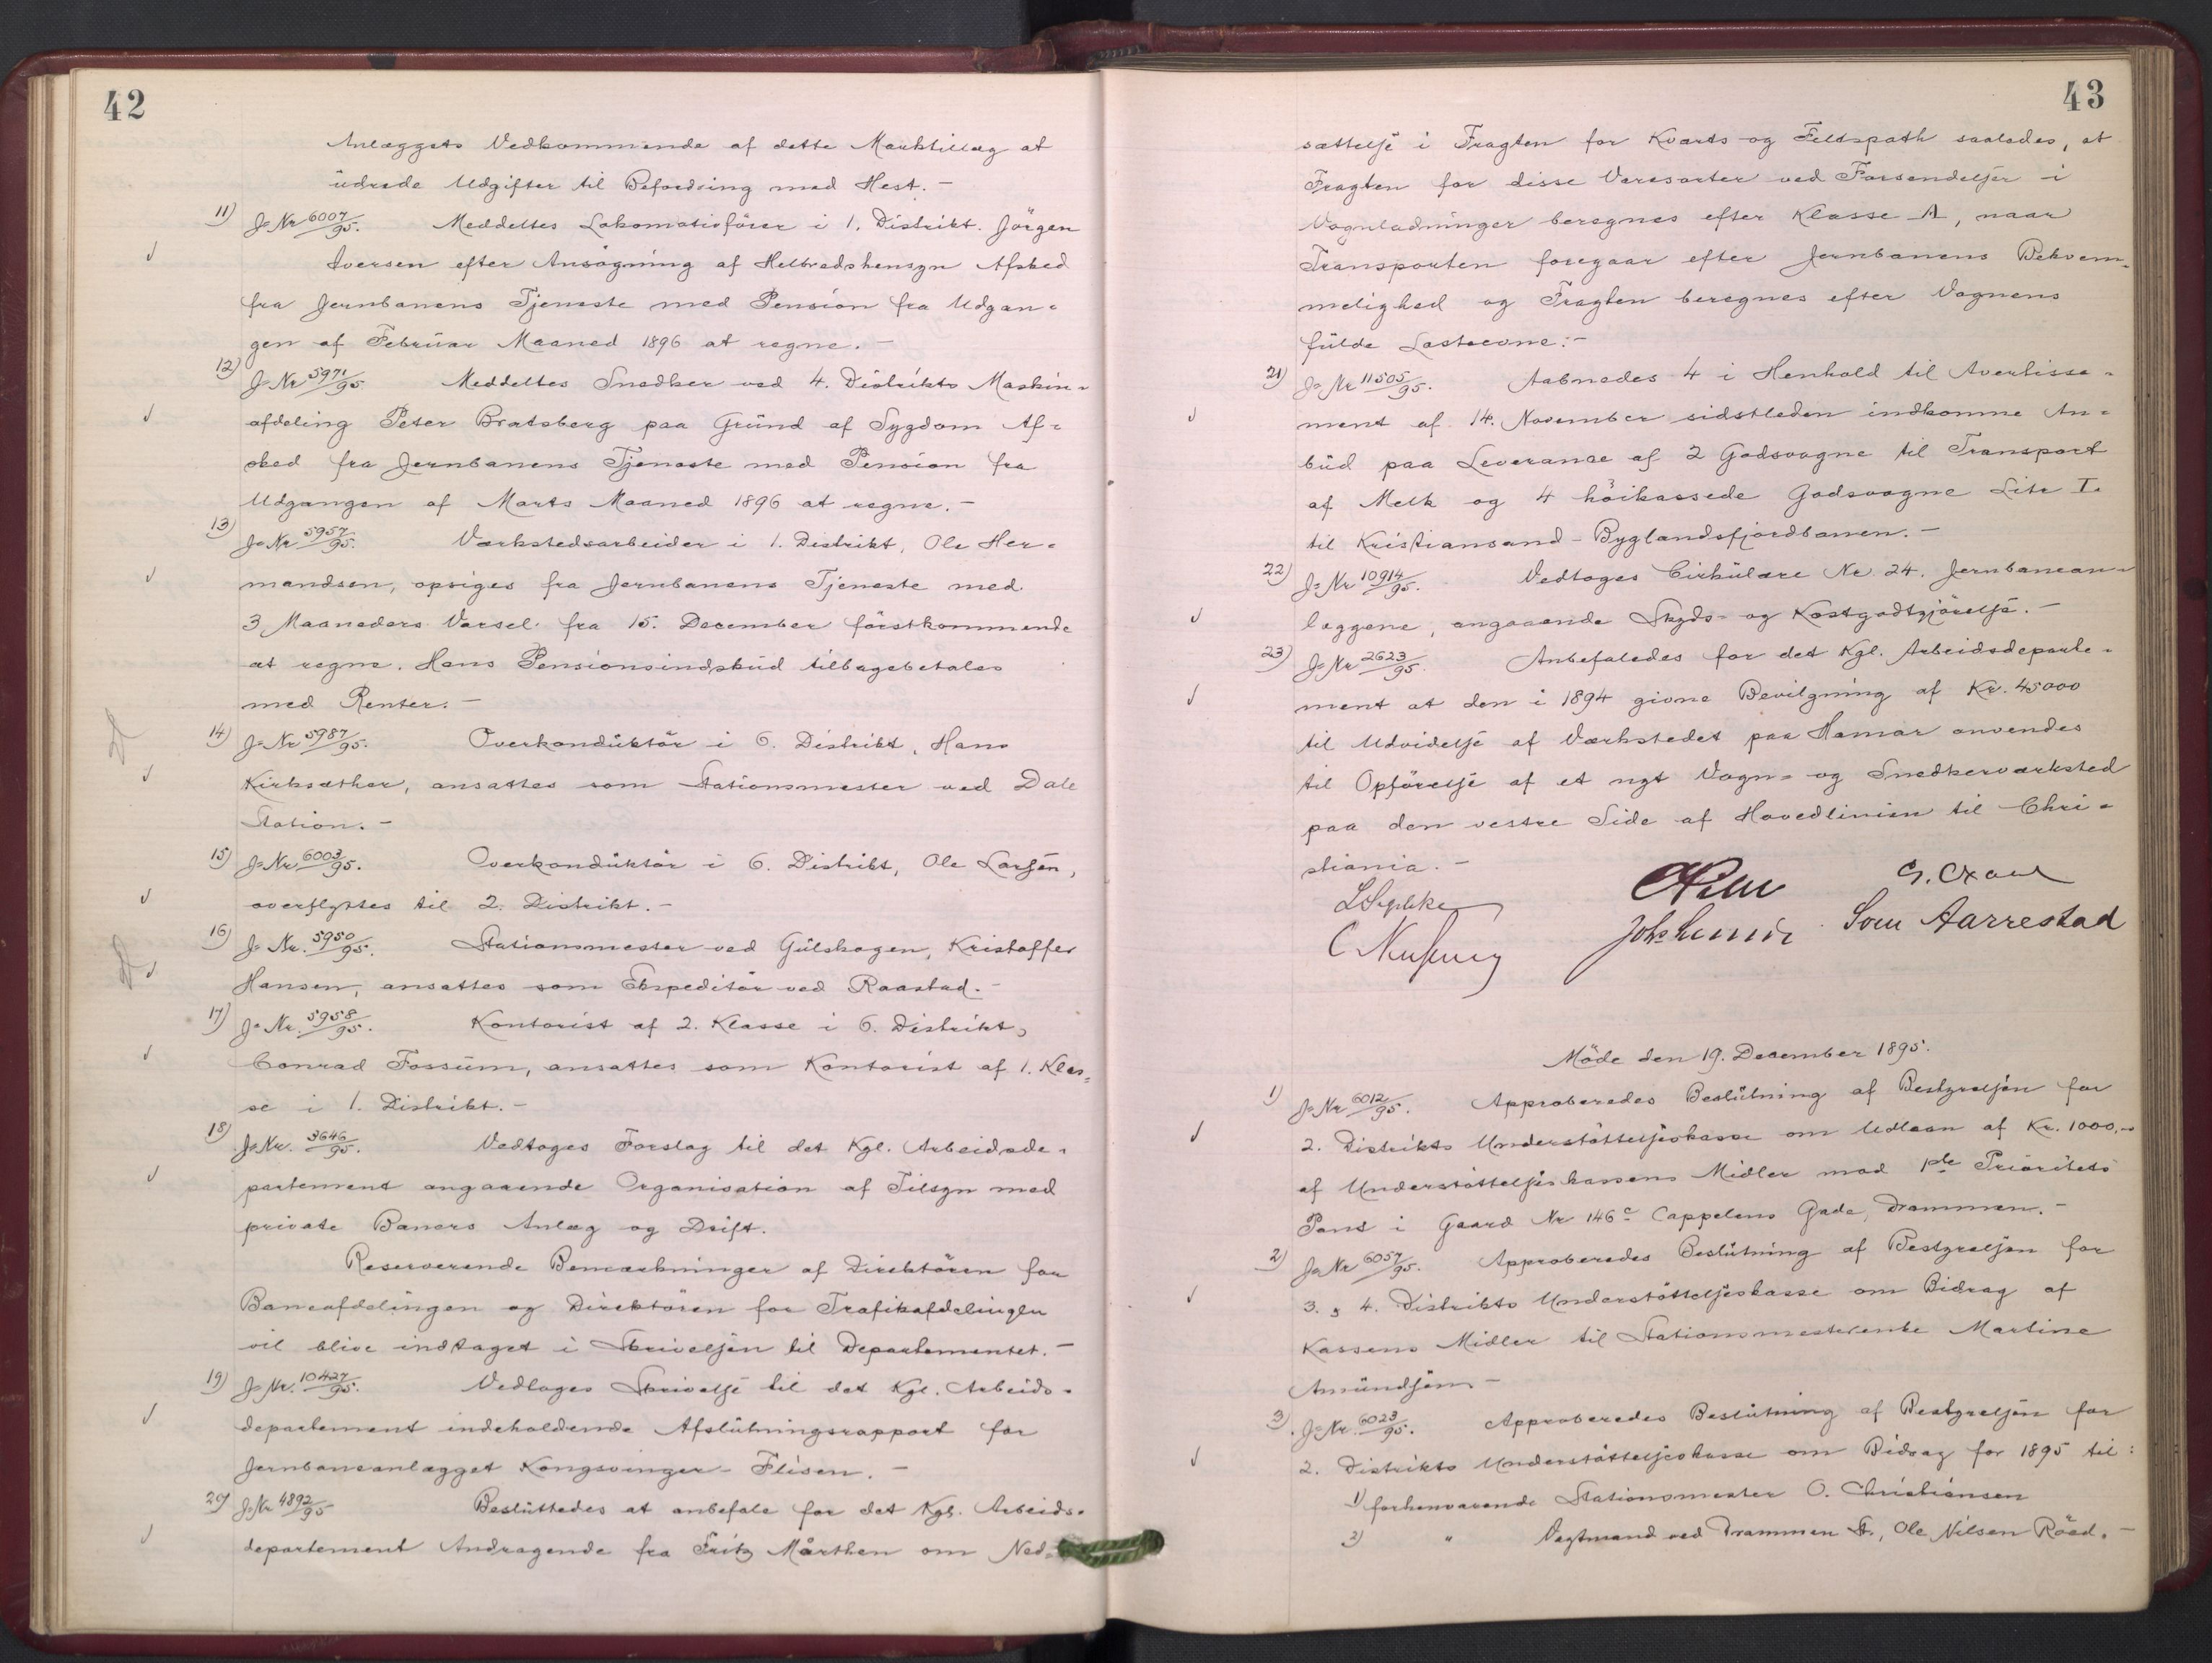 42
Anlæggets Vedkommende af dette Marktillæg at
udrede Udgifter til Befordring med Hest. –
11) J=Nr 6007/95. Meddeltes Lokomotivförer i 1. Distrikt. Jörgen
Iversen efter Ansögning af Helbredshensyn Afsked
fra Jernbanens Tjeneste med Pension fra Udgan=
gen af Februar Maaned 1896 at regne. –
12) J=Nr 5971/95 Meddeltes Snedker ved 4. Distrikts Maskin=
afdeling Peter Bratsberg paa Grund af Sygdom Af=
sked fra Jernbanens Tjeneste med Pension fra
Udgangen af Marts Maaned 1896 at regne. –
13) J=Nr 5957/95. Værkstedsarbeider i 1. Distrikt, Ole Her=
mandsen, opsiges fra Jernbanens Tjeneste med
3 Maaneders Varsel fra 15. December förstkommende
at regne. Hans Pensionsindskud tilbagebetales
med Renter. –
14) J=Nr 5987/95. Overkonduktör i 6. Distrikt, Hans
Kirksæther, ansattes som Stationsmester ved Dale
Station. –
15) J=Nr 6003/95. Overkonduktör i 6. Distrikt, Ole Larsen,
overflyttes til 2. Distrikt. –
16) J=Nr. 5950/95. Stationsmester ved Gulskogen, Kristoffer
Hansen, ansattes som Ekspeditör ved Raastad. –
17) J=Nr. 5958/95. Kontorist af 2. Klasse i 6. Distrikt,
Conrad Fossum, ansattes som Kontorist af 1. Klas=
se i 1. Distrikt. –
18) J=Nr. 3646/95. Vedtoges Forslag til det Kgl. Arbeidsde=
partement angaaende Organisation af Tilsyn med
private Baners Anlæg og Drift.
Reserverende Bemærkninger af Direktören for
Baneafdelingen og Direktören for Trafikafdelingen
vil blive indtaget i Skrivelsen til Departementet. –
19) J=Nr. 10427/95. Vedtoges Skrivelse til det Kgl. Arbeids=
departement indeholdende Afslutningsrapport for
Jernbaneanlægget Kongsvinger–Flisen. –
20) J=Nr 4892/95 Besluttedes at anbefale for det Kgl. Arbeids=
departement Andragende fra Fritz Mårthen om Ned=
43
sættelse i Fragten for Kvarts og Feldspath saaledes, at
Fragten for disse Varesorter ved Forsendelser i
Vognladninger beregnes efter Klasse A, naar
Transporten foregaar efter Jernbanens Bekvem=
melighed og Fragten beregnes efter Vognens
fulde Lasteevne. –
21) J=Nr 11505/95. Aabnedes 4 i Henhold til Avertisse=
ment af 14. November sidstleden indkomne An=
bud paa Leverance af 2 Godsvogne til Transport
af Melk og 4 höikassede Godsvogne Litr I.
til Kristiansand–Byglandsfjordbanen. –
22) J=Nr 10914/95. Vedtoges Cirkulære Nr. 24. Jernbanean=
læggene, angaaende Skyds= og Kostgodtgjörelse. –
23) J=Nr 2623/95. Anbefaledes for det Kgl. Arbeidsdeparte=
ment at den i 1894 givne Bevilgning af Kr. 45000
til Udvidelse af Værkstedet paa Hamar anvendes
til Opförelse af et nyt Vogn= og Snedkerværksted
paa den vestre Side af Hovedlinien til Chri=
stiania. –
Sven Aarrestad
Möde den 19. December 1895.
1) J=Nr 6012/95. Approberedes Beslutning af Bestyrelsen for
2. Distrikts Understöttelseskasse om Udlaan af Kr. 1000,=
af Understöttelseskassens Midler mod 1ste Prioritets
Pant i Gaard Nr 146c Cappelens Gade, Drammen. –
2) J=Nr 6057/95. Approberedes Beslutning af Bestyrelsen for
3. & 4. Distrikts Understöttelseskasse om Bidrag af
Kassens Midler til Stationsmesterenke Martine
Amundsen –
3) J=Nr. 6023/95. Approberedes Beslutning af Bestyrelsen for
2. Distrikts Understöttelseskasse om Bidrag for 1895 til:
1) forhenværende Stationsmester O. Christiansen
2) " Vagtmand ved Drammen St., Ole Nilsen Röed. –